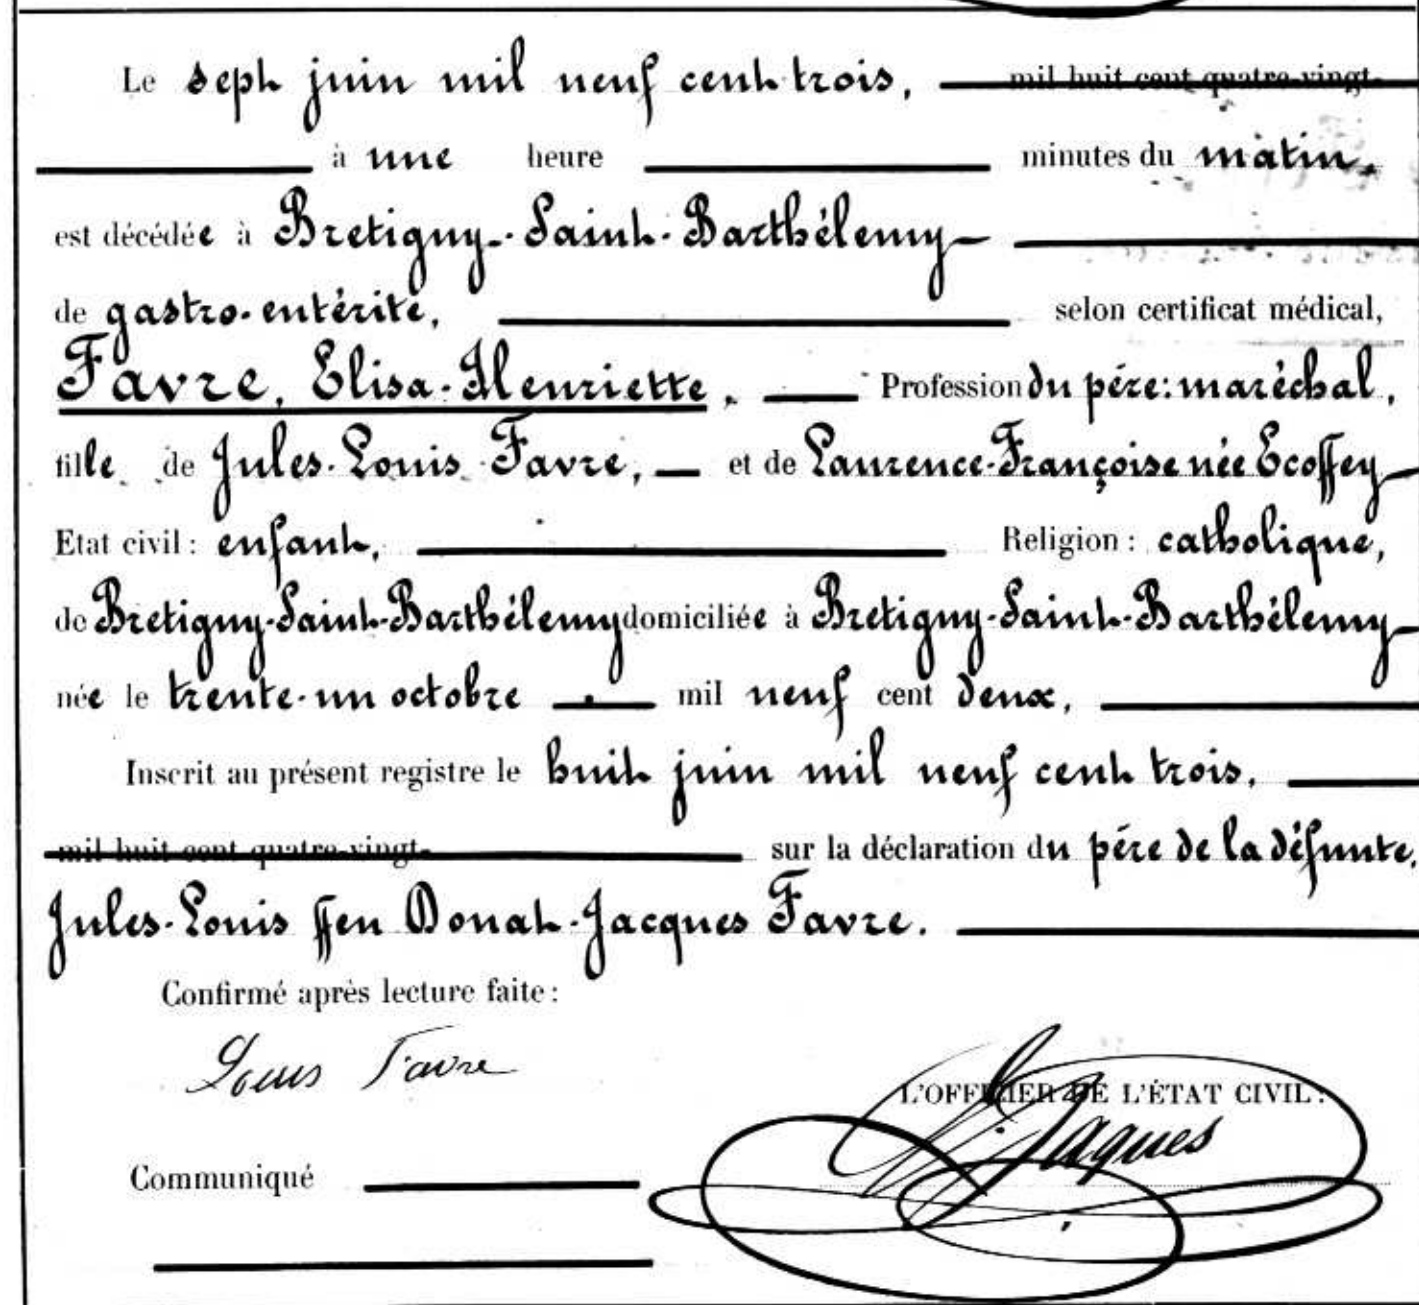 Le sept juin mil neuf cent trois, mil huit cent quatre-vingt-
à une heure minutes du matin,
est décédée à Bretigny-Saint-Barthélemy
de gastro-entérite, selon certificat médical,
Favre, Elisa-Henriette, Profession du pére: maréchal,
fille de Jules-Louis Favre, et de Laurence-Françoise née Ecoffey
Etat civil: enfant, Religion: catholique,
de Bretigny-Saint-Barthélemy domiciliée à Bretigny-Saint-Barthélemy
née le trente-un octobre mil neuf cent deux,
Inscrit au présent registre le huit juin mil neuf cent trois,
mil huit cent quatre-vingt- sur la déclaration du pére de la défunte,
Jules-Louis ffeu Donat-Jacques Favre.
Confirmé après lecture faite:
Louis Favre
L'OFFICIER DE L'ÉTAT CIVIL:
Jaques
Communiqué